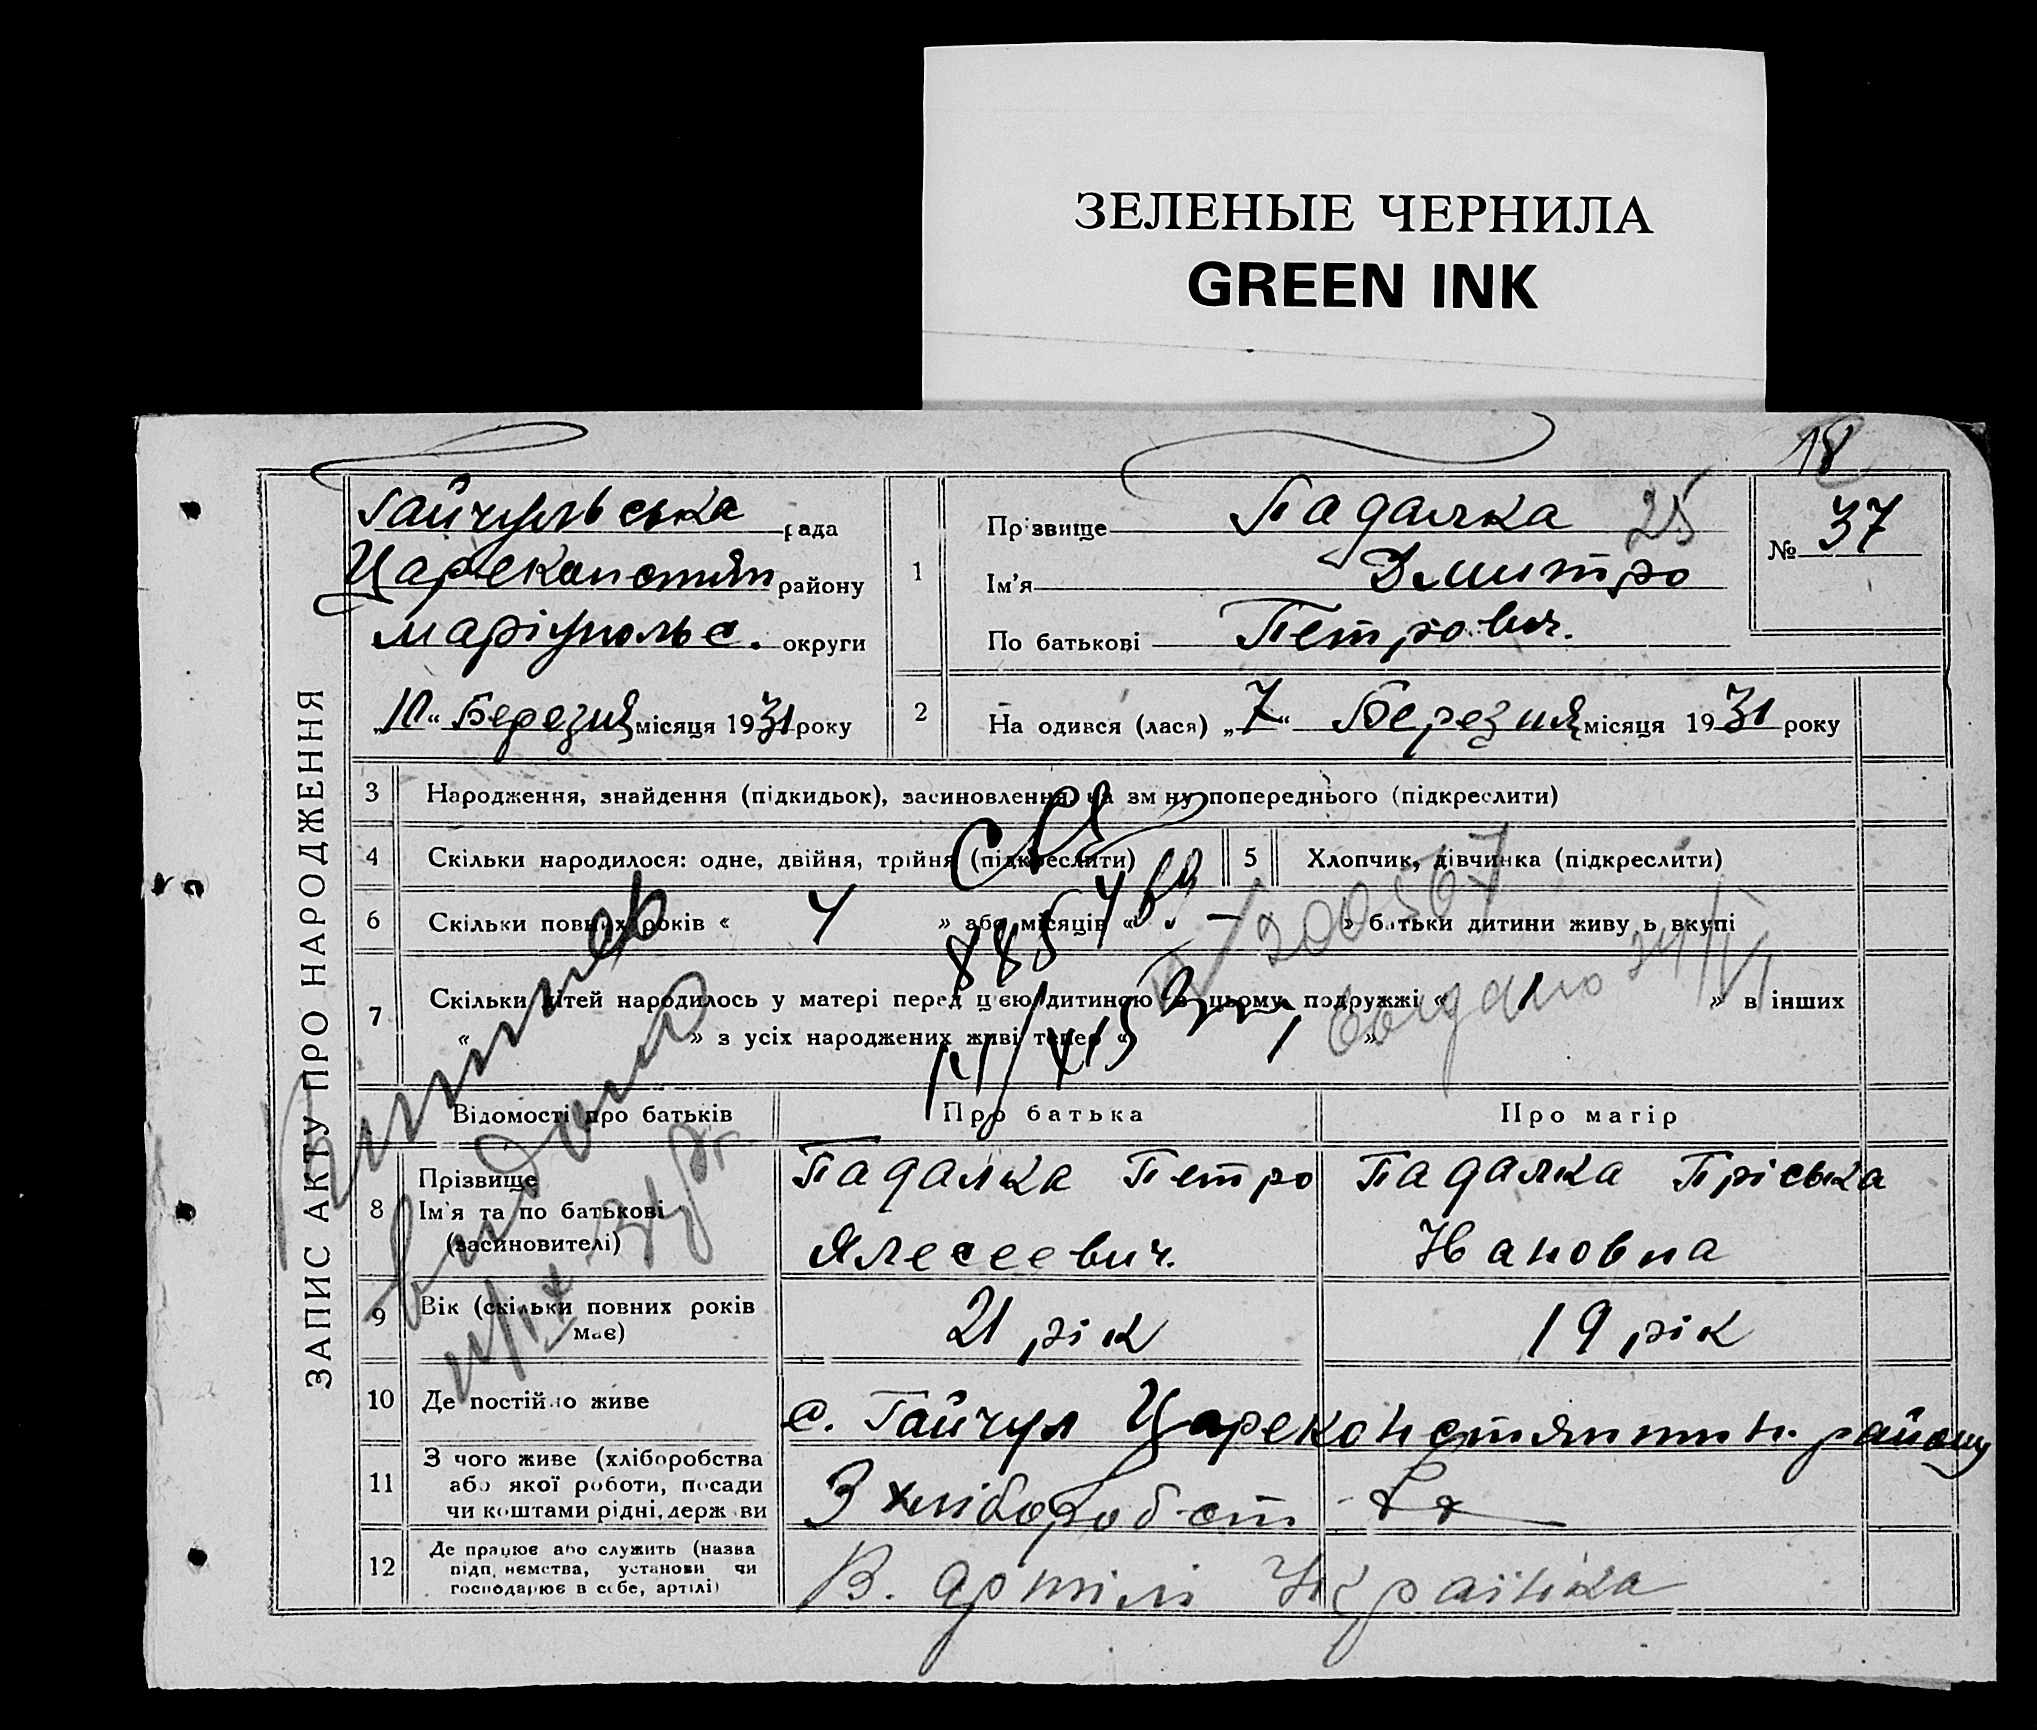 ЗЕЛЕНЫЕ ЧЕРНИЛА
GREEN INK
18
ЗАПИС АКТУ ПРО НАРОДЖЕННЯ
Гайчульська рада
Цареконстян району
маріупольс. округи
„10“ Березня місяця 1931 року
1
Прізвище Падалка 25
Ім'я Дмитро
По батькові Петрович.
№ 37
2
На одився (лася) „7“ Березня місяця 1931 року
3 Народження, знайдення (підкидьок), засиновлення, на зм ну попереднього (підкреслити)
4 Скільки народилося: одне, двійня, трійня (підкреслити)
5 Хлопчик, дівчинка (підкреслити)
6 Скільки повних років « 4 » або місяців « – » батьки дитини живу ь вкупі
200567
7 Скільки дітей народилось у матері перед цією дитиною в цьому подружжі « 1 » в інших
« » з усіх народжених живі тепер « 1 »
видано
Відомості про батьків
Про батька
Про матір
8 Прізвище
Ім'я та по батькові
(засиновителі)
Падалка Петро
Ялесеевич.
Падалка Пріська
Ивановна
9 Вік (скільки повних років
має)
21 рік
19 рік
10 Де постійно живе
с. Гайчул Цареконстянтин. району
11 З чого живе (хліборобства
або якої роботи, посади
чи коштами рідні, держ ви
З хлібороб-ст
12 Де працює або служить (назва
підп, иємства, установи чи
господарює в себе, артілі)
В. артілі Українка